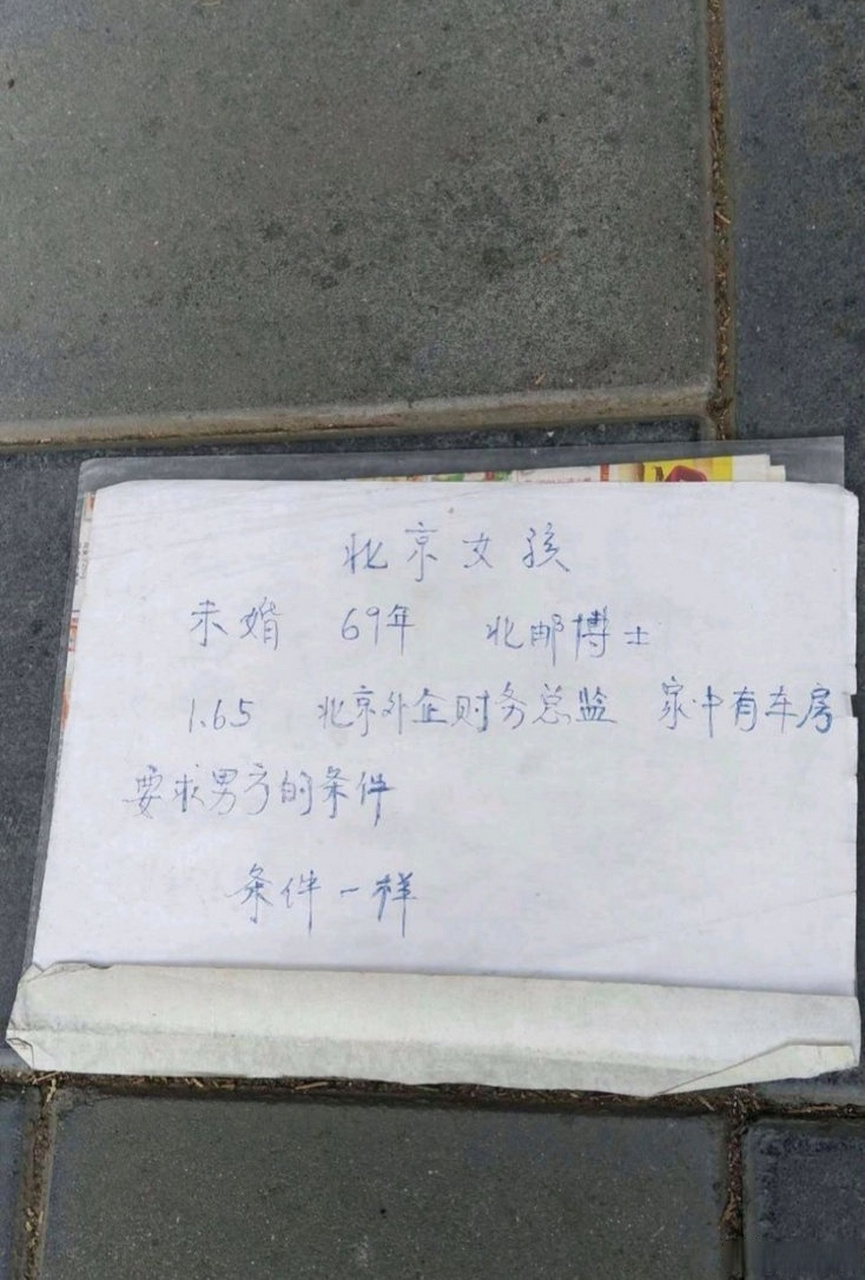 北京女孩
未婚 69年 北邮博士
1.65 北京外企财务总监 家中有车房
要求男方的条件
条件一样